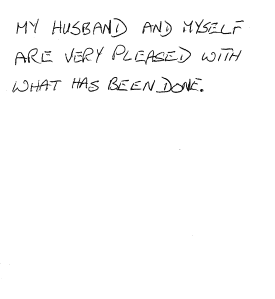 MY HUSBAND AND MYSELF
ARE VERY PLEASED WITH
WHAT HAS BEEN DONE.